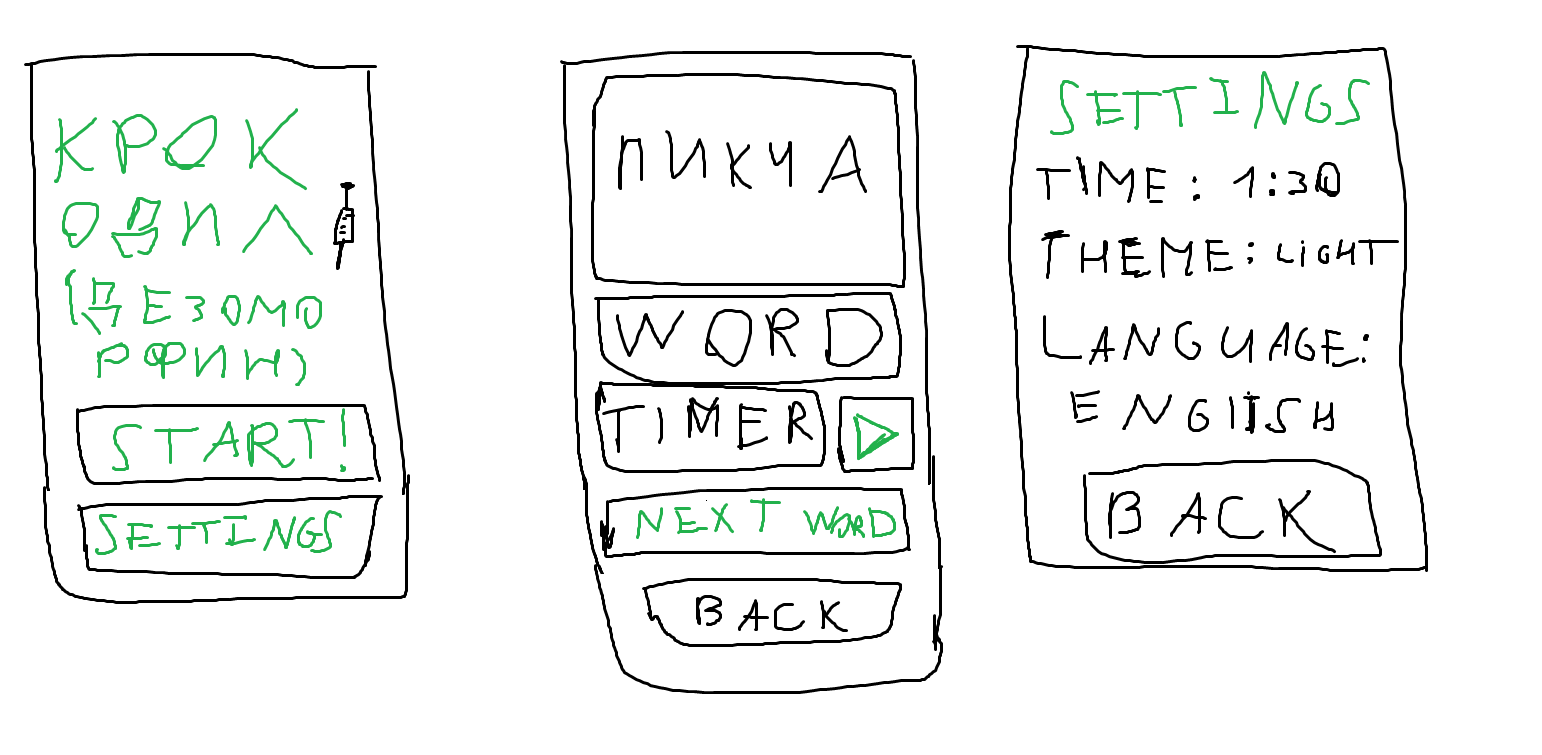 КРОК
ОДИЛ
(ДЕЗОМО
РФИН)
START!
SETTINGS
ПИКЧА
WORD
TIMER
NEXT WORD
BACK
SETTINGS
TIME: 1:30
THEME: LIGHT
LANGUAGE:
ENGlISH
BACK